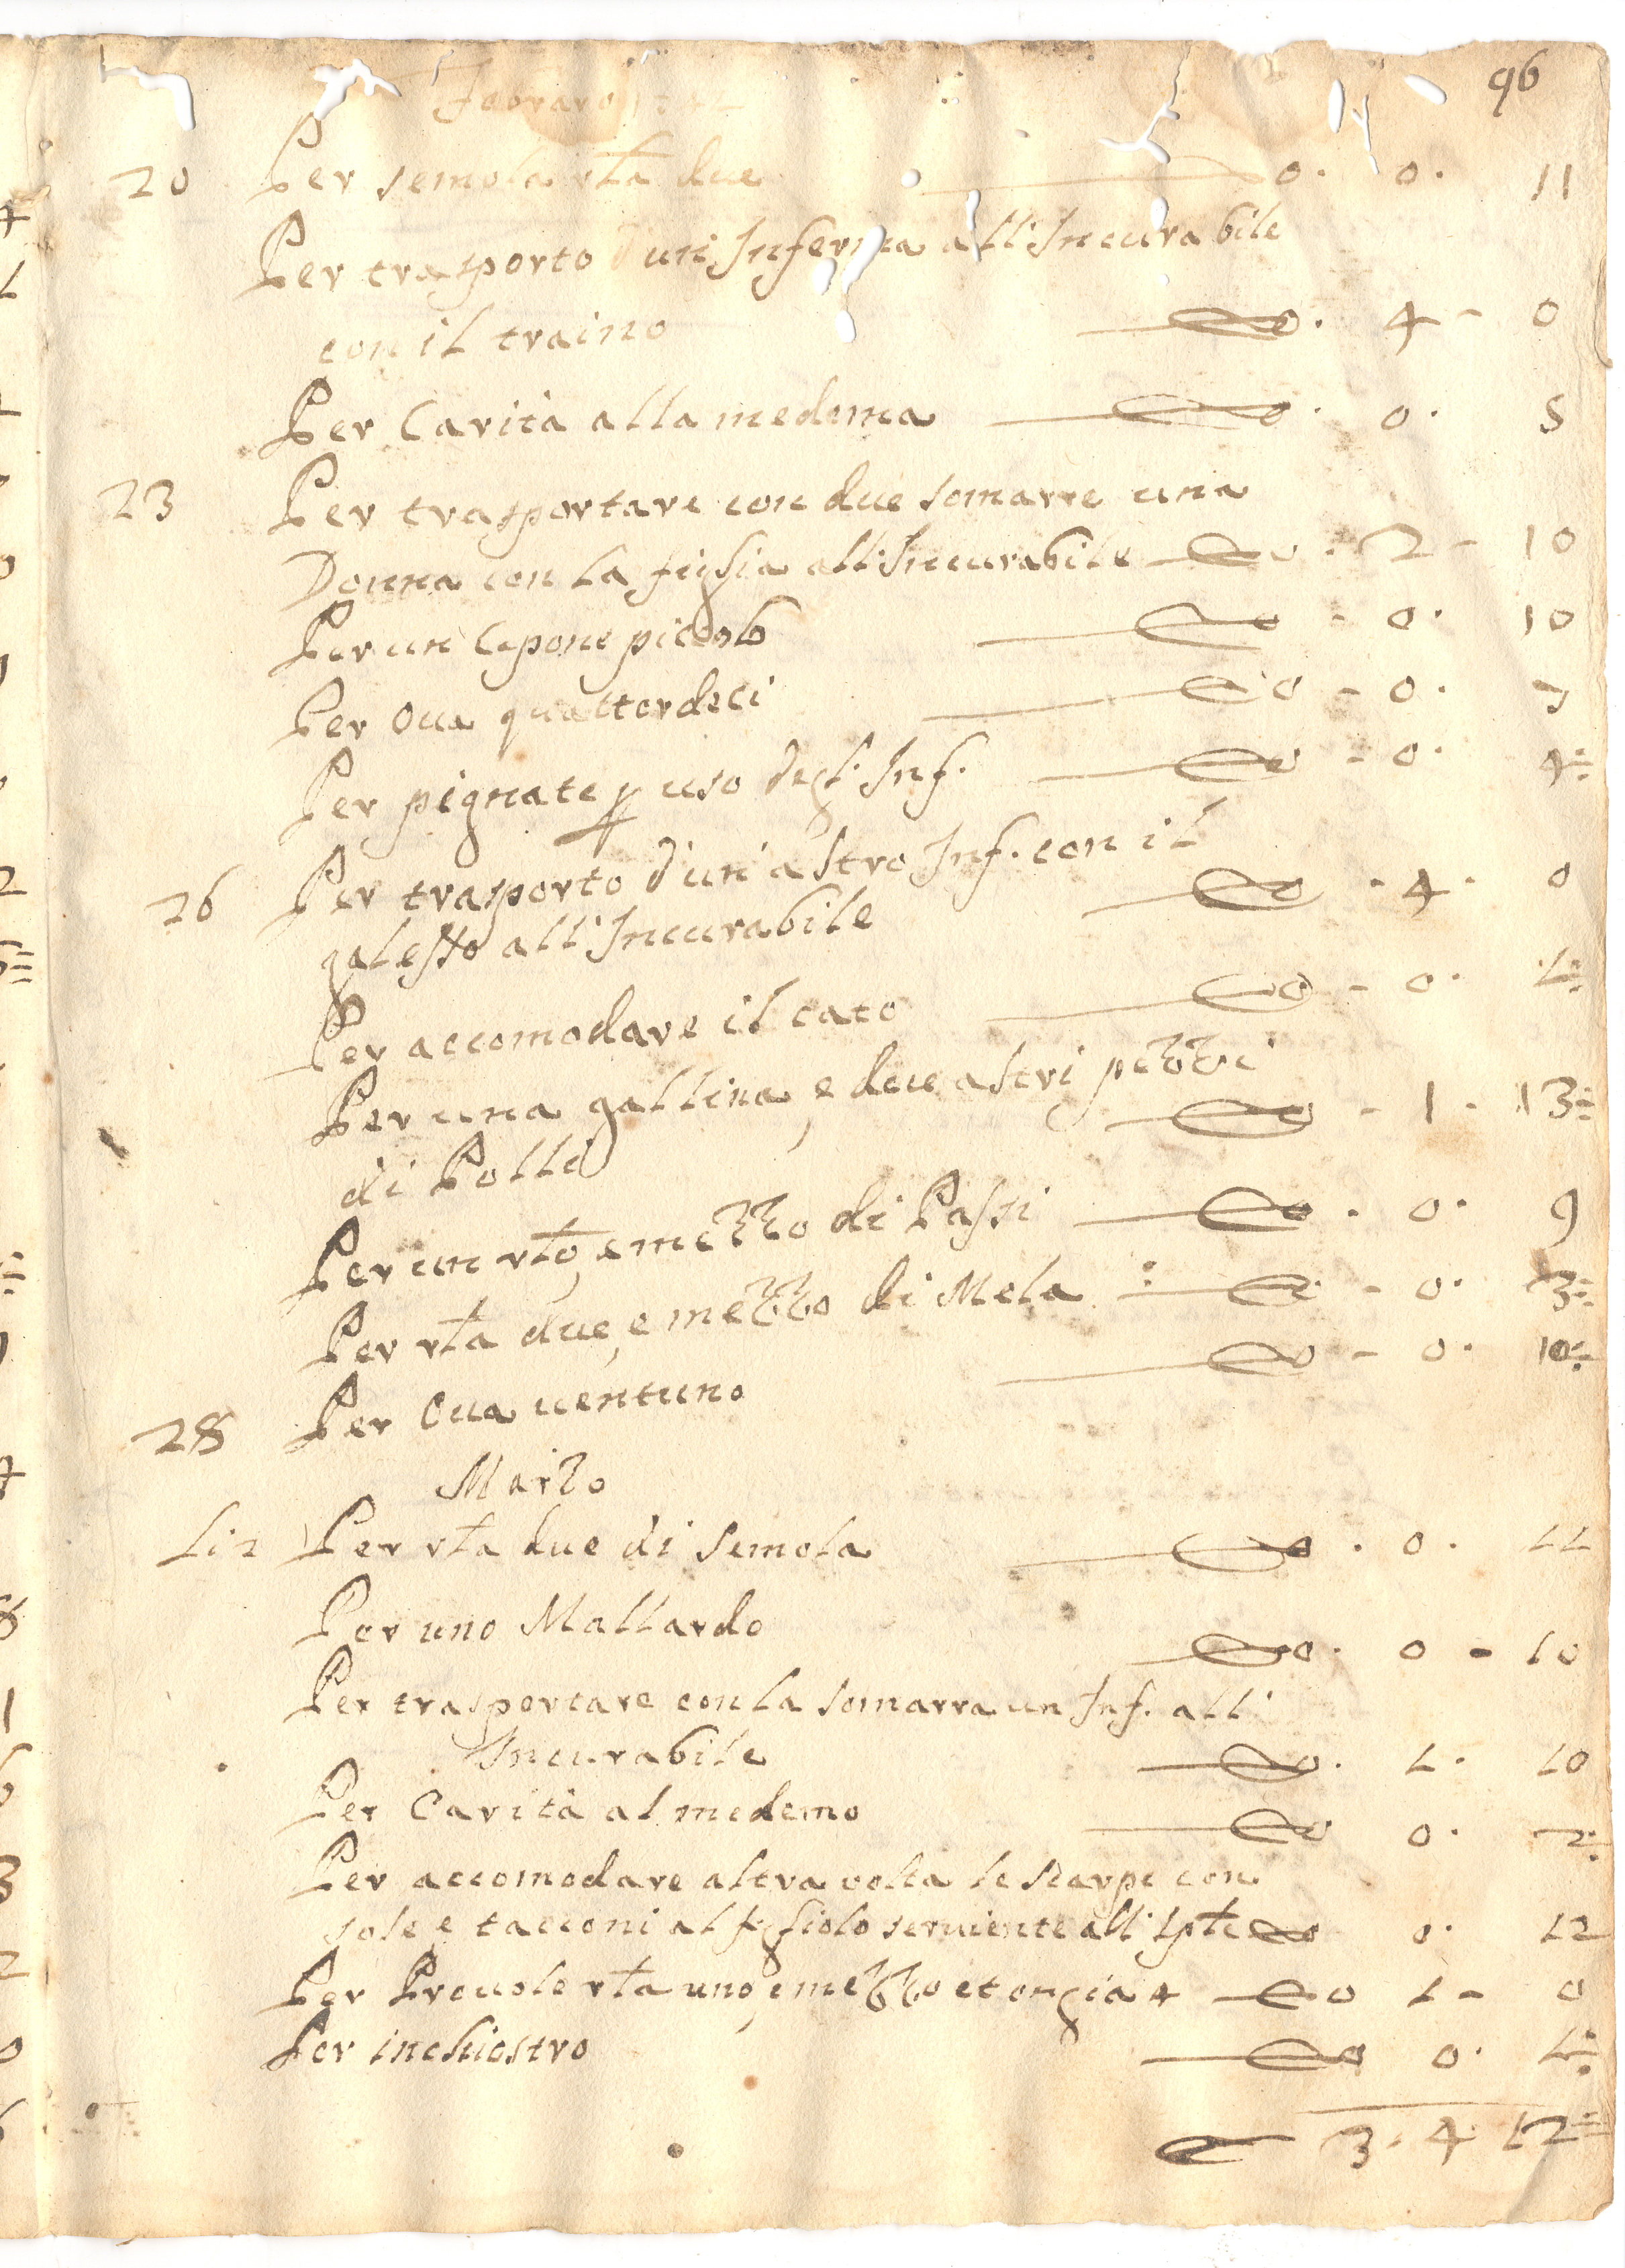 96
Febraro
20 Per semola rt̃a due 0. 0. 11
Per trasporto d'un Inferma all'Incurabile
con il traino 0. 4 - 0
Per Carità alla medema 0. 0. 5
23 Per trasportare con due somarre una
Donna con la figlia all'Incurabile 0. 2 - 10
Per un Capone piccolo - 0. 10
Per Oua quattordeci 0 - 0. 7
Per pignate p uso degl'Inf. 0 - 0. 4=
26 Per trasporto d'un'altro Inf. con il
galesso all'Incurabile 0. 4. 0
Per accomodare il cato 0 - 0. 1=
Per una gallina, e due altri pezzi
di Polli 0 - 1. 13=
Per un rt̃o, e mezzo di Passi 0. 0. 9
Per rt̃a due, e mezzo di Mela : 0 - 0. 3=
28 Per Oua uentuno 0 - 0. 10=
Marzo
Li 2 Per rt̃a due di Semola 0. 0. 11
Per uno Mallardo 0. 0 - 10
Per trasportare con la somarra un Inf. all'
Incurabile 0. 1. 10
Per Carità al medemo 0 0. 2
Per accomodare altra uolta le scarpe con
sole e tacconi al figliolo seruiente all' 0 0. 12
Per Prouole rt̃a uno, e mezzo et onzia 4 0 1 - 0
Per inchiostro 0 0. 1=
3. 4 12=